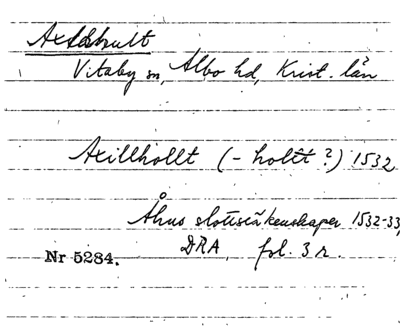 Axelshult
Vitaby sn, Albo hd, Krist. län
Axillhollt (- holtt ?) 1532
Åhus slottsräkenskaper 1532-33,
DRA, fol. 3 r.
Nr 5284.